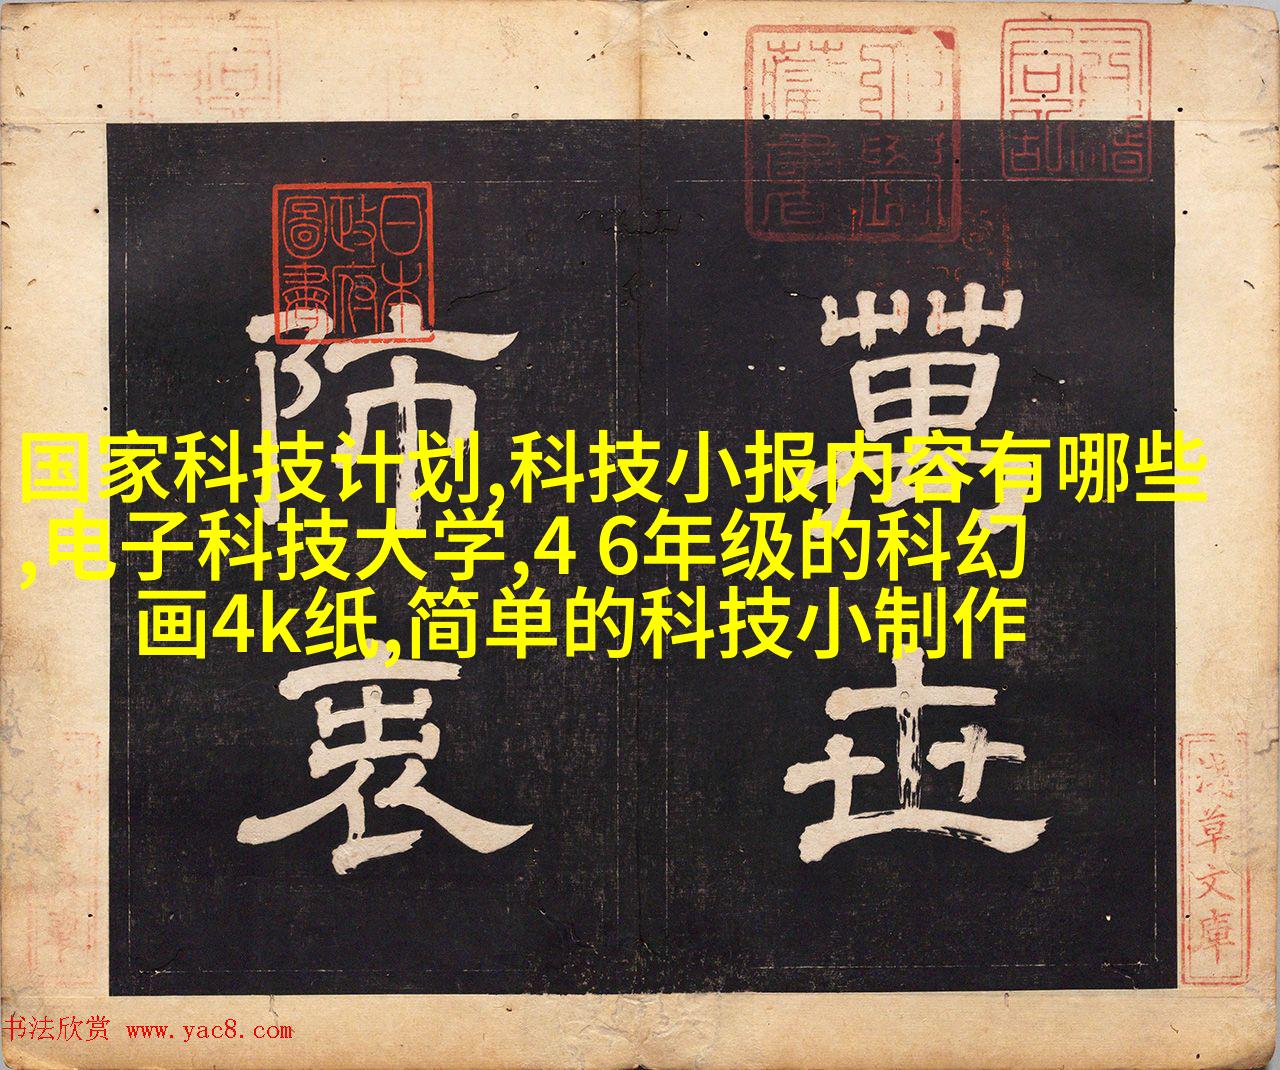 国家科技计划,科技小报内容有哪些
,电子科技大学,4 6年级的科幻
画4k纸,简单的科技小制作
萬世
師表
日本
政府
圖書
淺草文庫
书法欣赏 www.yac8.com